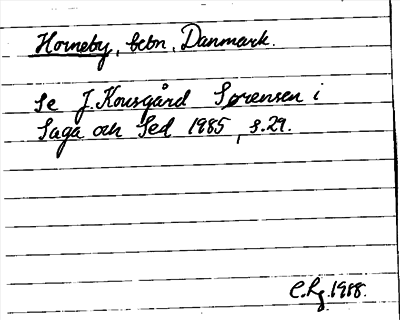 Horneby, bebn. Danmark.
Se J. Kousgård Sørensen i
Saga och Sed 1985, s.29.
C.Lg.1988.